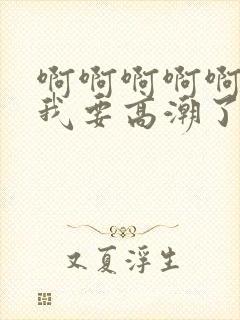 啊啊啊啊啊
我要高潮了
又夏浮生